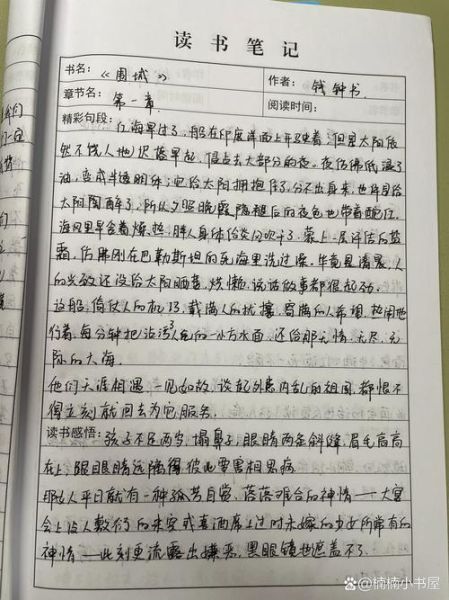 读书笔记
书名：《围城》
作者：钱钟书
章节名：第一章
阅读时间：
精彩句段：红海早过了，船在印度洋面上开驶着，但是太阳依
然不饶人地迟落早起，侵占去大部分的夜。夜仿佛纸浸了
油，变成半透明体；它给太阳拥抱住了，分不出身来，也许是给
太阳陶醉了，所以夕照晚霞隐褪后的夜色也带着酡红。
海风里早含着燥热，胖人身体给炎风吹干了，蒙上一层汗结的盐
霜，仿佛刚在巴勒斯坦的死海里洗过澡。毕竟是清晨，人
的兴致还没给太阳晒萎，烘懒，说话做事都很起劲。
这船，倚仗人的机巧，载满人的扰攘，寄满人的希望，热闹地
行着，每分钟把沾污了人气的一小方水面，还给那无情、无尽、无
际的大海。
他们天涯相遇，一见如故，谈起外患内乱的祖国，都恨不
得立刻就回去为它服务。
读书感悟：孩子不足两岁，塌鼻子，眼睛两条斜缝，眉毛高高
在上，跟眼睛远隔得彼此要害相思病
那女人平日就有一种孤芳自赏、落落难合的神情——大宴
会上没人敷衍的来宾或喜酒席上过时未嫁的少女所常有的
神情——此刻更流露出嫌恶，黑眼镜也遮盖不了。
知乎 @楠楠小书屋